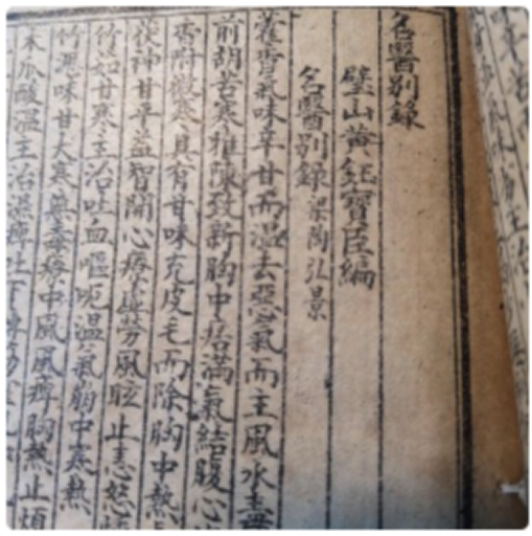 名醫別錄
璧山黄鈺寶臣編
名醫別錄 梁陶弘景
藿香氣味辛甘而溫去惡氣而主風水毒
前胡苦寒推陳致新胸中痞滿氣結腹心
香附微寒其有甘味充皮毛而除胸中熱
茯神甘平益智開心療虛勞風眩止恚怒
竹茹甘寒主治吐血嘔吮溫氣崩中寒熱
竹瀝味甘大寒無毒療中風風痺胸熱止煩
木瓜酸溫主治濕痺吐